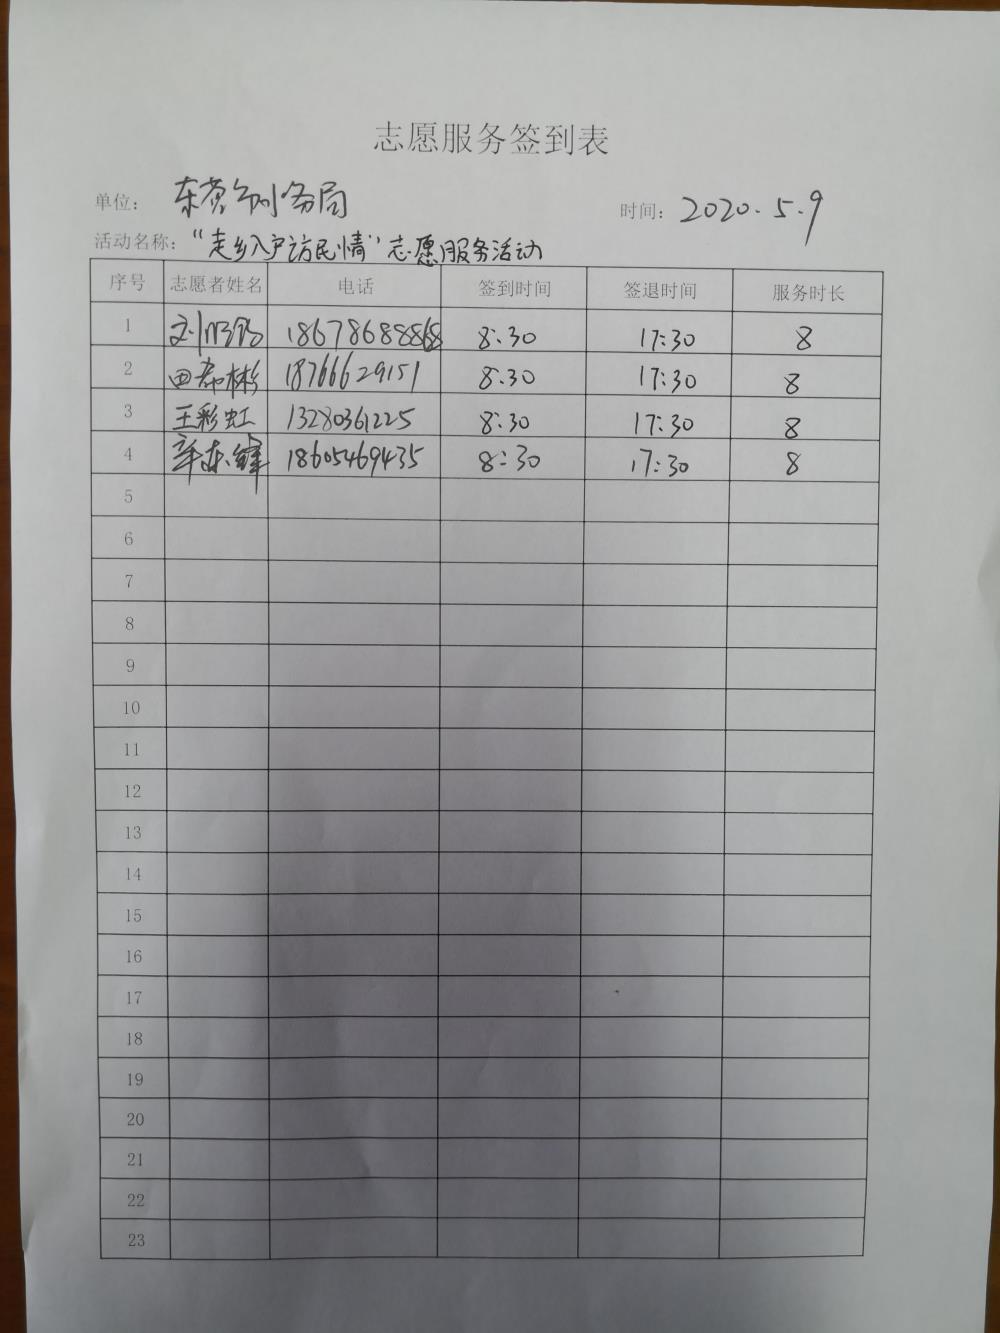 志愿服务签到表
单位: 东营市税务局 时间: 2020.5.9
活动名称: “走乡入户访民情”志愿服务活动
序号 志愿者姓名 电话 签到时间 签退时间 服务时长
1 8:30 17:30 8
2 田希彬 18766629151 8:30 17:30 8
3 王彩虹 13280361225 8:30 17:30 8
4 辛东锋 18605469435 8:30 17:30 8
5
6
7
8
9
10
11
12
13
14
15
16
17
18
19
20
21
22
23